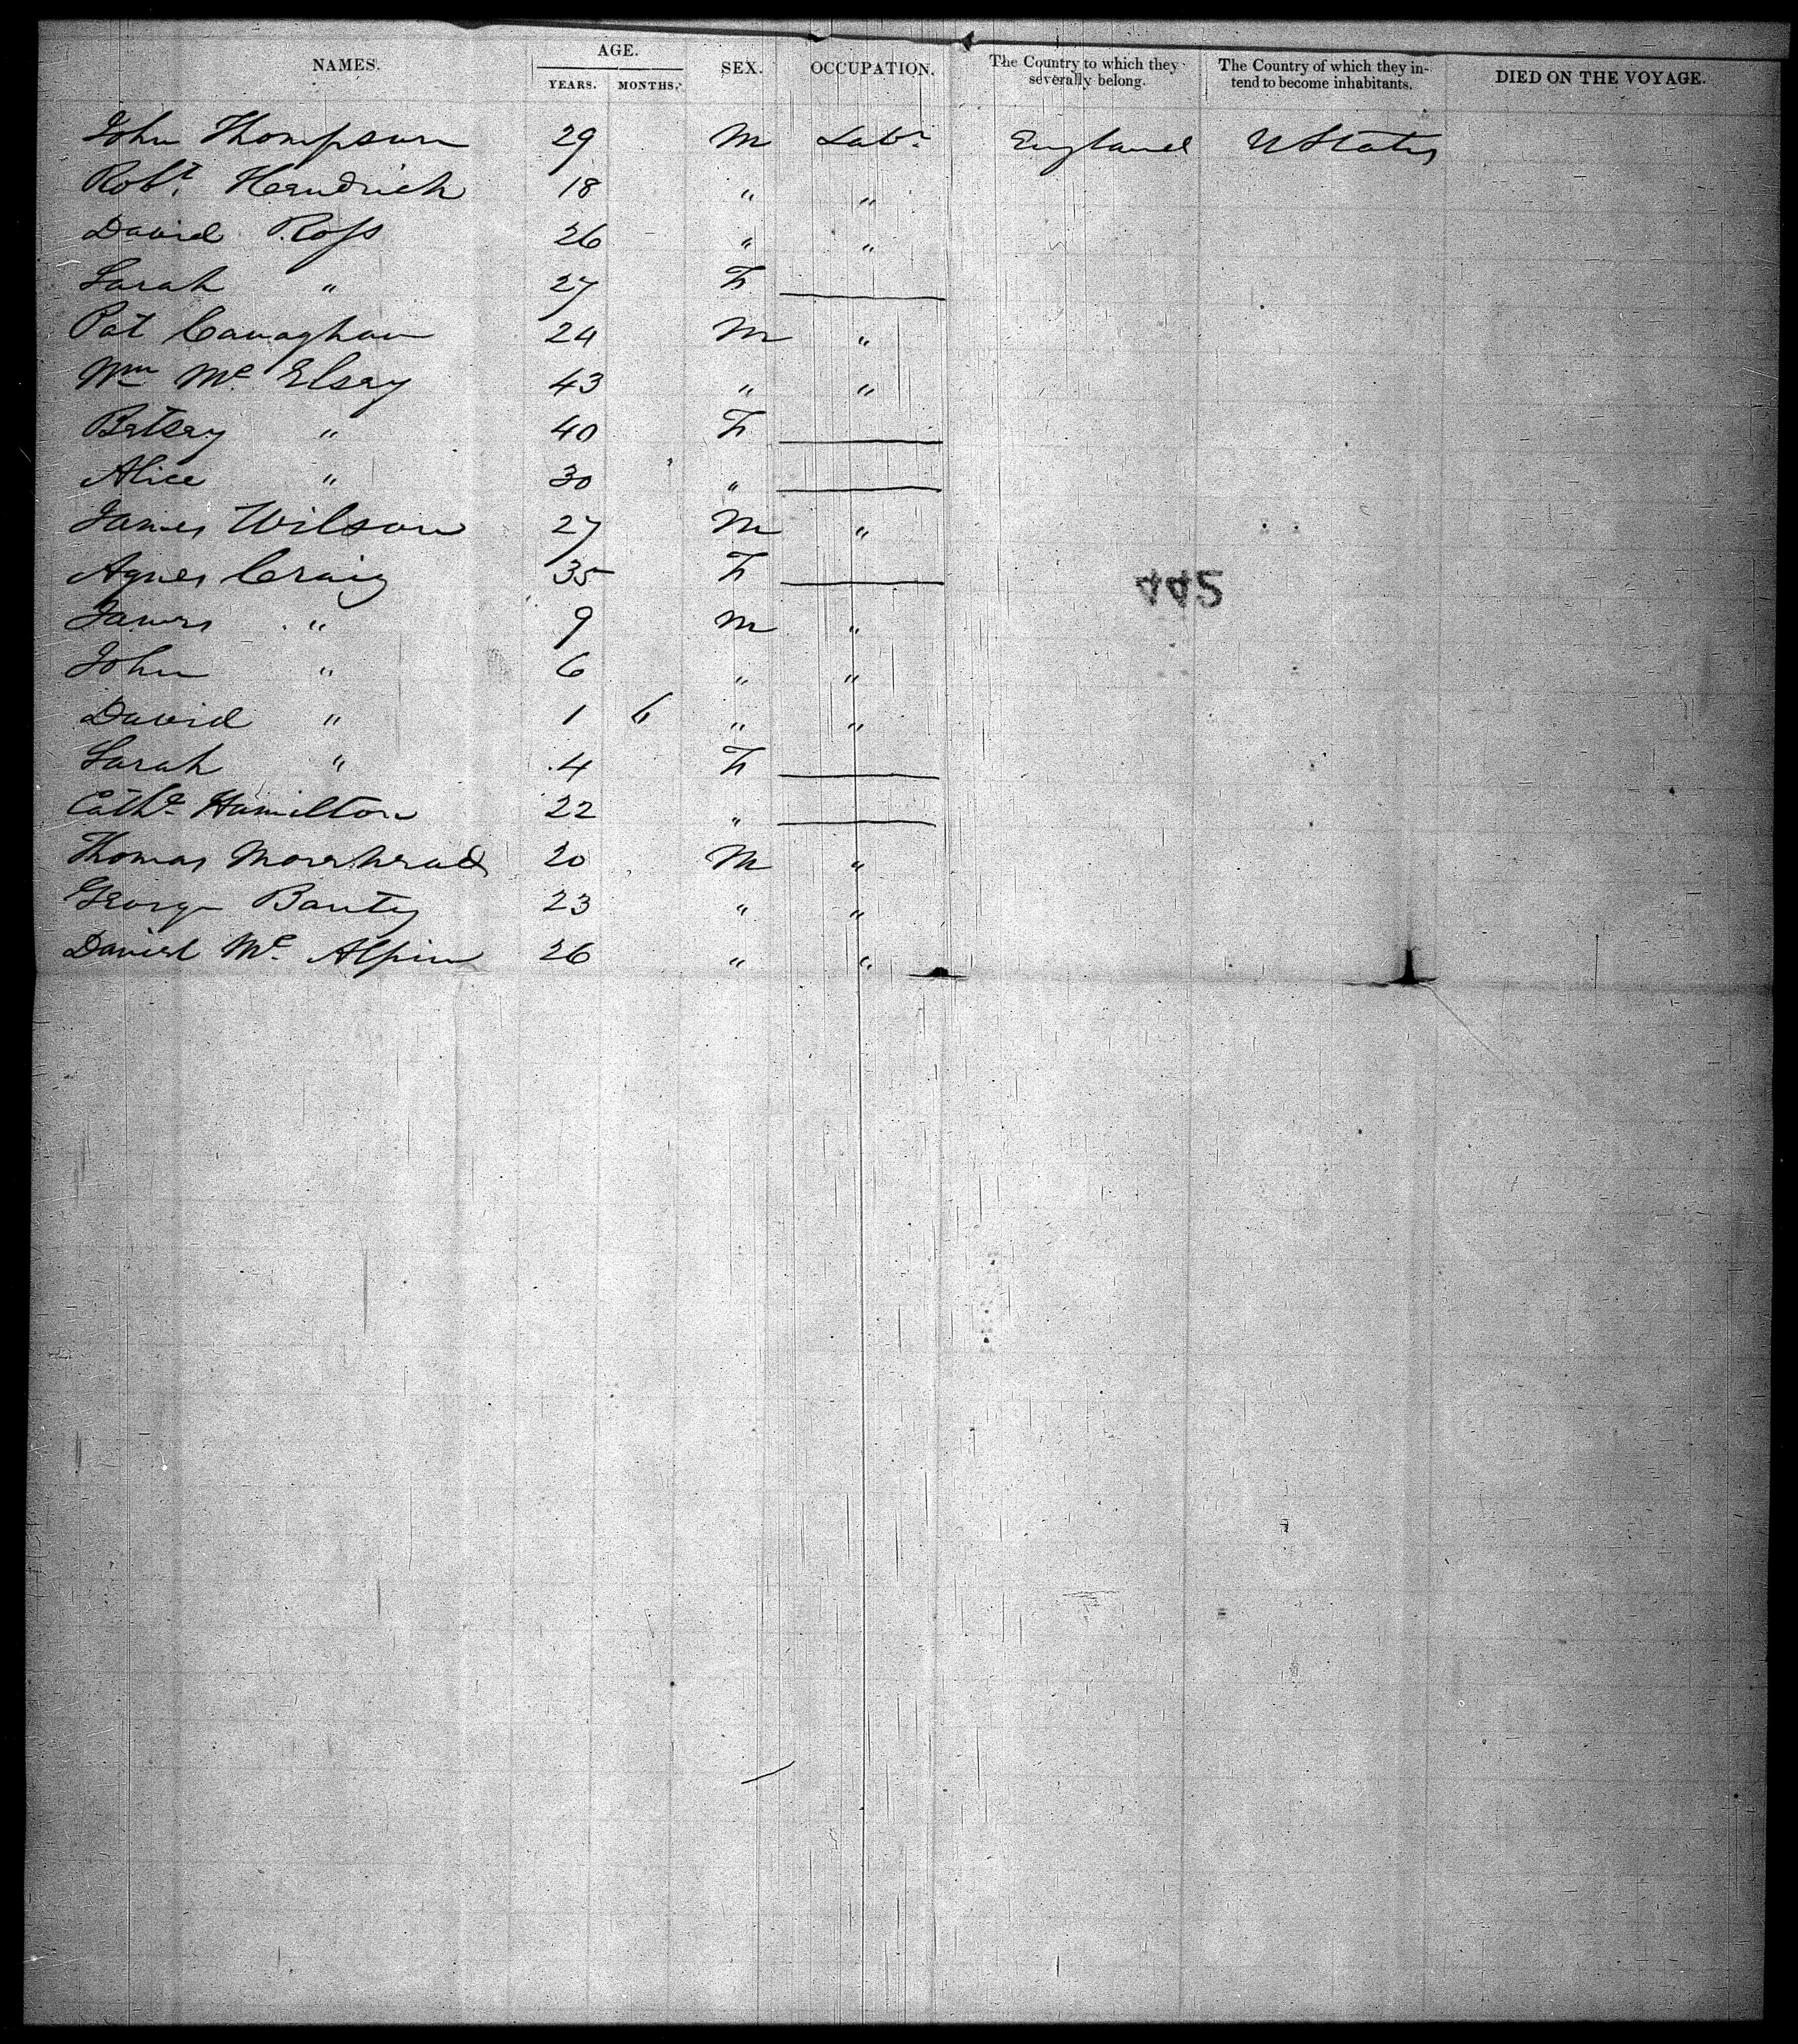 NAMES. AGE. YEARS. MONTHS. SEX. OCCUPATION. The Country to which they severally belong. The Country of which they intend to become inhabitants. DIED ON THE VOYAGE.
John Thompson 29 M Labr England U States
Robt. Hendrick 18 " "
David Ross 26 " "
Sarah " 27 F
Pat Canaghan 24 M "
Wm Mc Elsey 43 " "
Betsey " 40 F
Alice " 30 "
James Wilson 27 M "
Agnes Craig 35 F
445
James " 9 M "
John " 6 " "
David " 1 6 " "
Sarah " 4 F
Cathe Hamilton 22 "
Thomas Moorhead 20 M "
George Banty 23 " "
Daniel Mc Alpin 26 " "